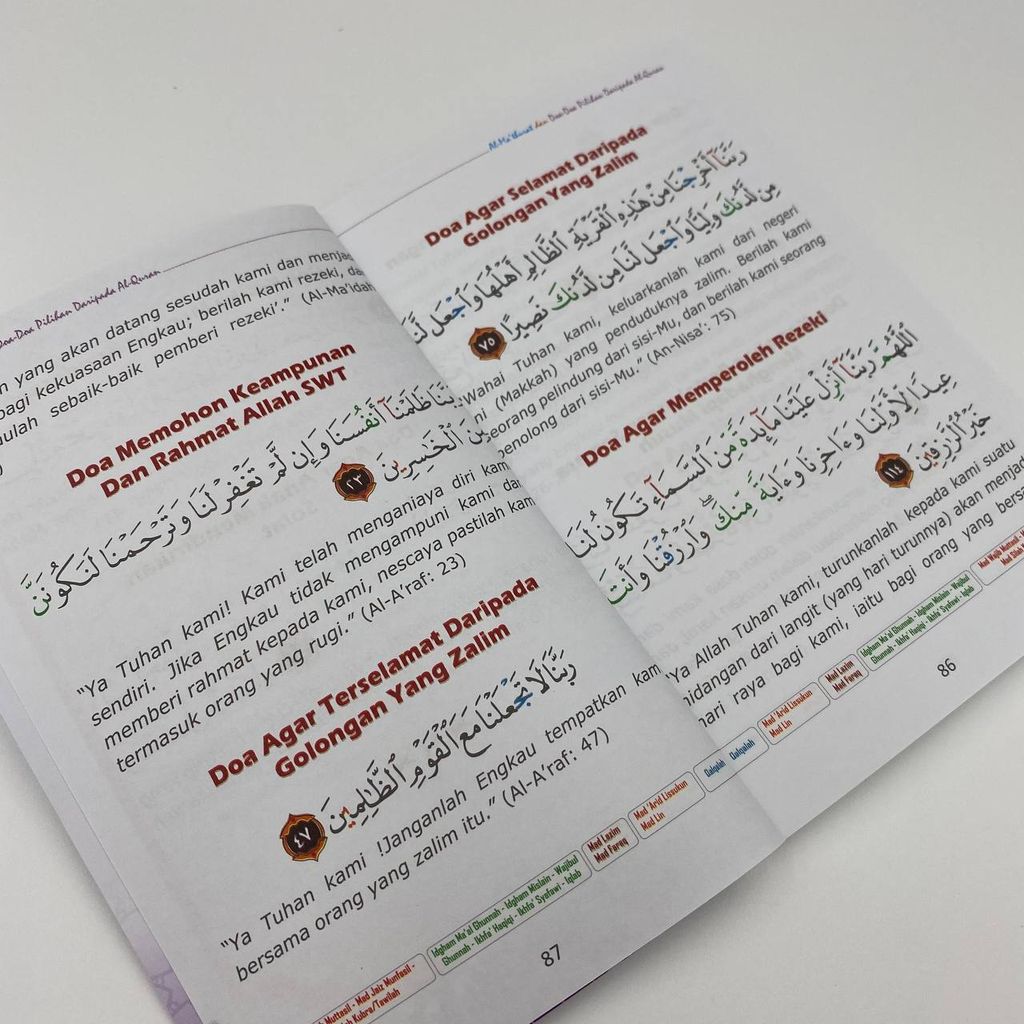 Al-Ma'thurat dan Doa-Doa Pilihan Daripada Al-Quran
Doa Agar Selamat Daripada
Golongan Yang Zalim
رَبَّنَآ أَخْرِجْنَا مِنْ هَٰذِهِ ٱلْقَرْيَةِ ٱلظَّالِمِ أَهْلُهَا وَٱجْعَل لَّنَا
مِن لَّدُنكَ وَلِيًّا وَٱجْعَل لَّنَا مِن لَّدُنكَ نَصِيرًا ٧٥
Wahai Tuhan kami, keluarkanlah kami dari negeri
ni (Makkah) yang penduduknya zalim. Berilah kami
seorang pelindung dari sisi-Mu, dan berilah kami seorang
penolong dari sisi-Mu." (An-Nisa': 75)
Doa Agar Memperoleh Rezeki
ٱللَّهُمَّ رَبَّنَآ أَنزِلْ عَلَيْنَا مَآئِدَةً مِّنَ ٱلسَّمَآءِ تَكُونُ لَنَا
عِيدًا لِّأَوَّلِنَا وَءَاخِرِنَا وَءَايَةً مِّنكَ ۖ وَٱرْزُقْنَا وَأَنتَ
خَيْرُ ٱلرَّٰزِقِينَ ١١٤
"Ya Allah Tuhan kami, turunkanlah kepada kami suatu
hidangan dari langit (yang hari turunnya) akan menjad
hari raya bagi kami, iaitu bagi orang yang bers
Mad Lin
Mad 'Arid Lissukun
Qalqalah
Mad Lazim
Mad Faraq
Idgham Ma'al Ghunnah - Idgham Mislain - Wajibul
Ghunnah - Ikhfa' Haqiqi - Ikhfa' Syafawi - Iqlab
86
Doa-Doa Pilihan Daripada Al-Quran
n yang akan datang sesudah kami dan menjad
bagi kekuasaan Engkau; berilah kami rezeki, da
sebaik-baik pemberi rezeki'." (Al-Ma'idah
Doa Memohon Keampunan
Dan Rahmat Allah SWT
رَبَّنَا ظَلَمْنَآ أَنفُسَنَا وَإِن لَّمْ تَغْفِرْ لَنَا وَتَرْحَمْنَا لَنَكُونَنَّ
مِنَ ٱلْخَٰسِرِينَ ٢٣
"Ya Tuhan kami! Kami telah menganiaya diri kami
sendiri. Jika Engkau tidak mengampuni kami dan
memberi rahmat kepada kami, nescaya pastilah kami
termasuk orang yang rugi." (Al-A'raf: 23)
Doa Agar Terselamat Daripada
Golongan Yang Zalim
رَبَّنَا لَا تَجْعَلْنَا مَعَ ٱلْقَوْمِ ٱلظَّٰلِمِينَ ٤٧
"Ya Tuhan kami !Janganlah Engkau tempatkan kam
bersama orang yang zalim itu." (Al-A'raf: 47)
Muttasil - Mad Jaiz Munfasil -
Kubra/Tawilah
Idgham Ma'al Ghunnah - Idgham Mislain - Wajibul
Ghunnah - Ikhfa' Haqiqi - Ikhfa' Syafawi - Iqlab
Mad Lazim
Mad Faraq
Mad 'Arid Lissukun
Mad Lin
Qalqalah
87